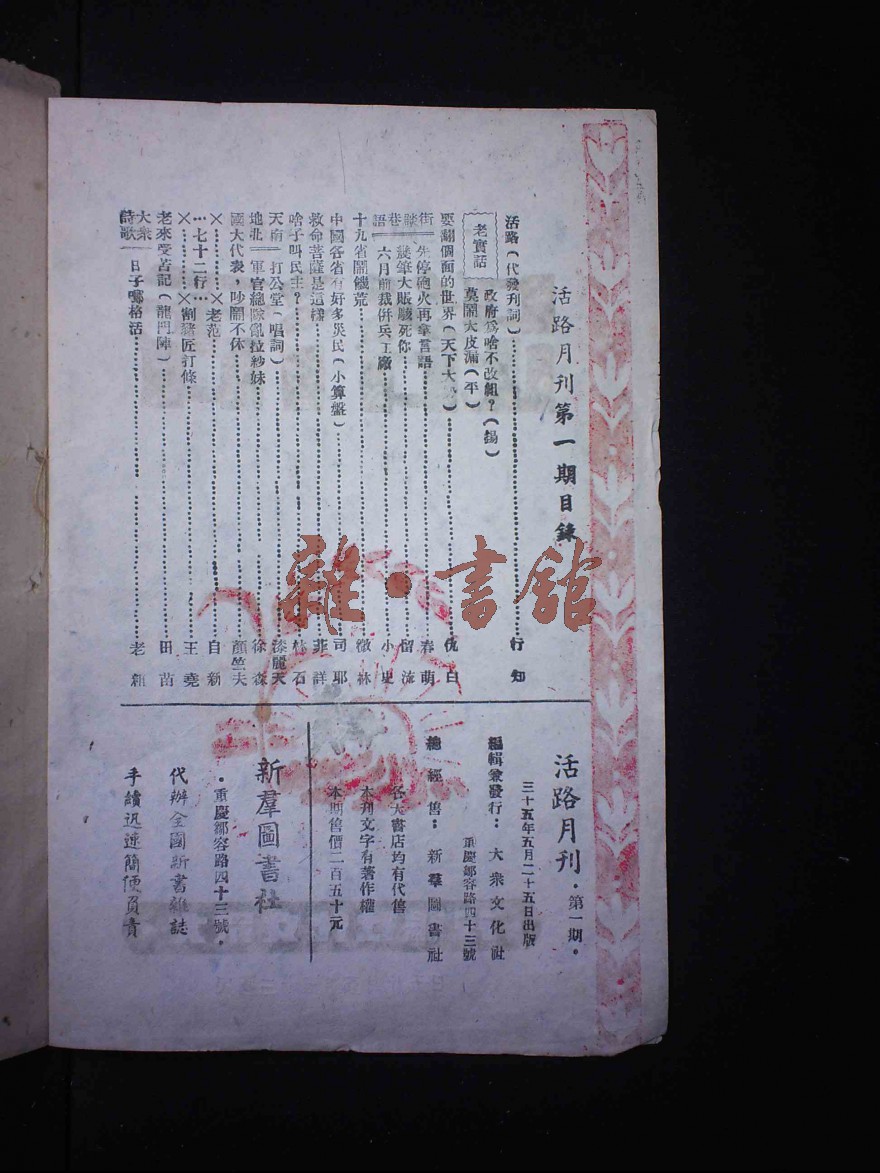 活路月刊第一期目錄
活路(代發刊詞)…………行知
老實話
政府爲啥不改組?(錫)
莫鬧大皮漏(平)
要翻個面的世界(天下大)…………白
街談巷語
先停砲火再拿言語…………春萌
幾筆大賬駭死你…………留流
六月前裁併兵工廠…………小史
十九省鬧饑荒…………林
中國各省有好多災民(小算盤)…………司耶
救命菩薩是這樣…………菲詳
啥子叫民主?…………林石
天南地北
打公堂(唱詞)…………漆麗天
軍官總隊亂拉紗妹…………徐森
國大代表,吵鬧不休…………顏竺夫
七十二行
老范…………自新
劁豬匠打條…………王堯
老來受苦記(龍門陣)…………田苗
大衆詩歌
日子哪格活…………老粗
活路月刊·第一期·
三十五年五月二十五日出版
編輯兼發行:大衆文化社
重慶鄒容路四十三號
總經售:新羣圖書社
各大書店均有代售
本刊文字有著作權
本期售價二百五十元
新羣圖書社
·重慶鄒容路四十三號·
代辦全國新書雜誌
手續迅速簡便負責
雜·書館